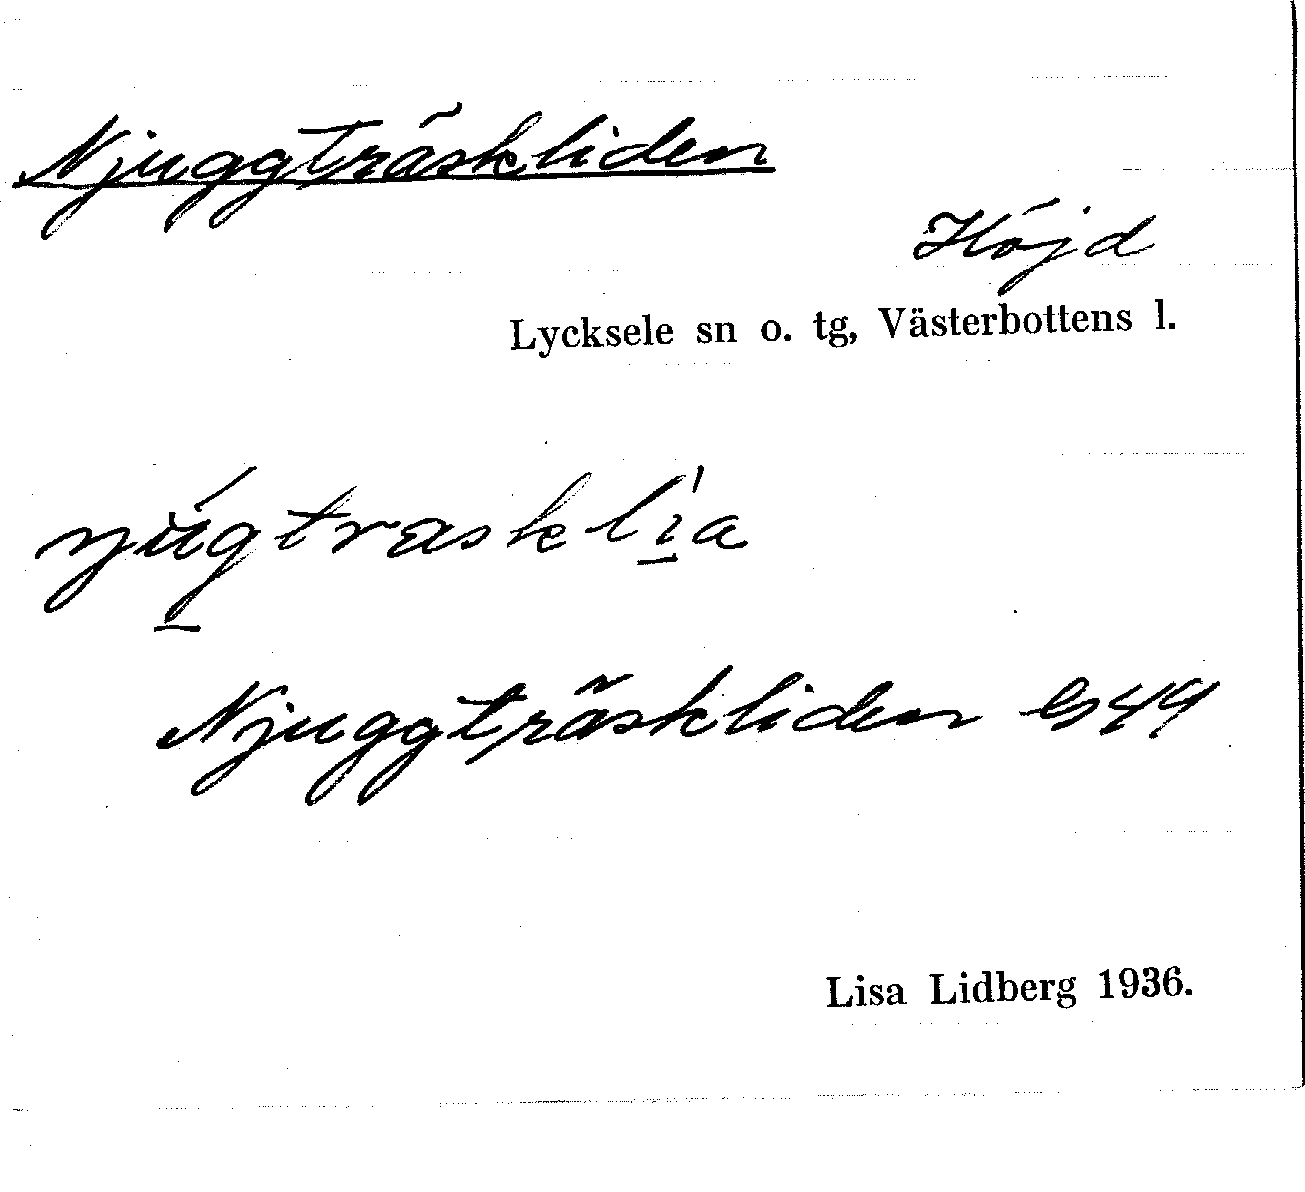 Njuggträskliden
Höjd
Lycksele sn o. tg, Västerbottens l.
Njuggträskliden
Lisa Lidberg 1936.